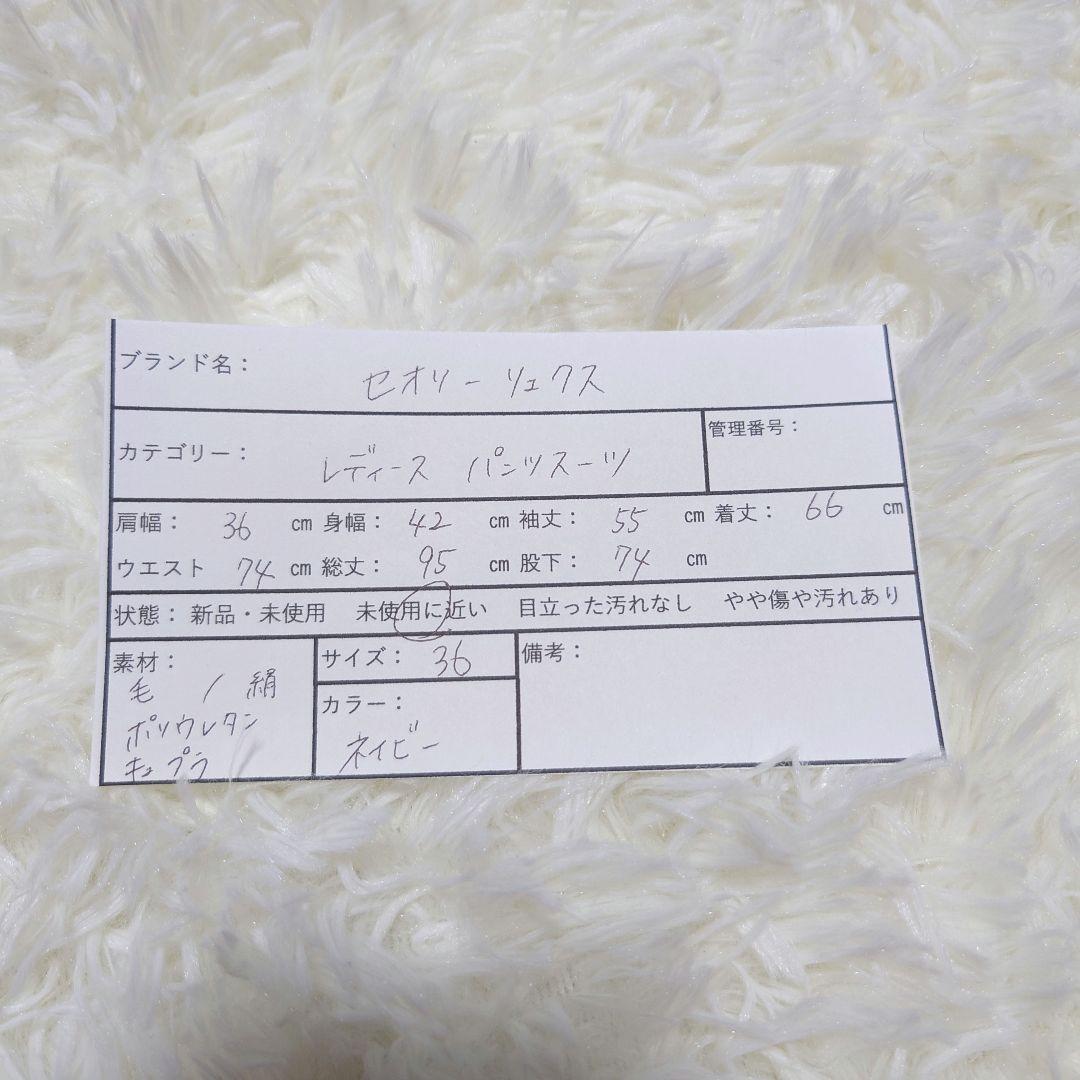 ブランド名： セオリーリュクス
カテゴリー： レディース パンツスーツ 管理番号：
肩幅： 36 cm 身幅： 42 cm 袖丈： 55 cm 着丈： 66 cm
ウエスト 74 cm 総丈： 95 cm 股下： 74 cm
状態： 新品・未使用 未使用に近い 目立った汚れなし やや傷や汚れあり
素材： サイズ： 36 備考：
毛 / 絹 カラー：
ポリウレタン ネイビー
キュプラ